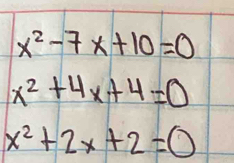 x²-7x+10=0
x²+4x+4=0
x²+2x+2=0